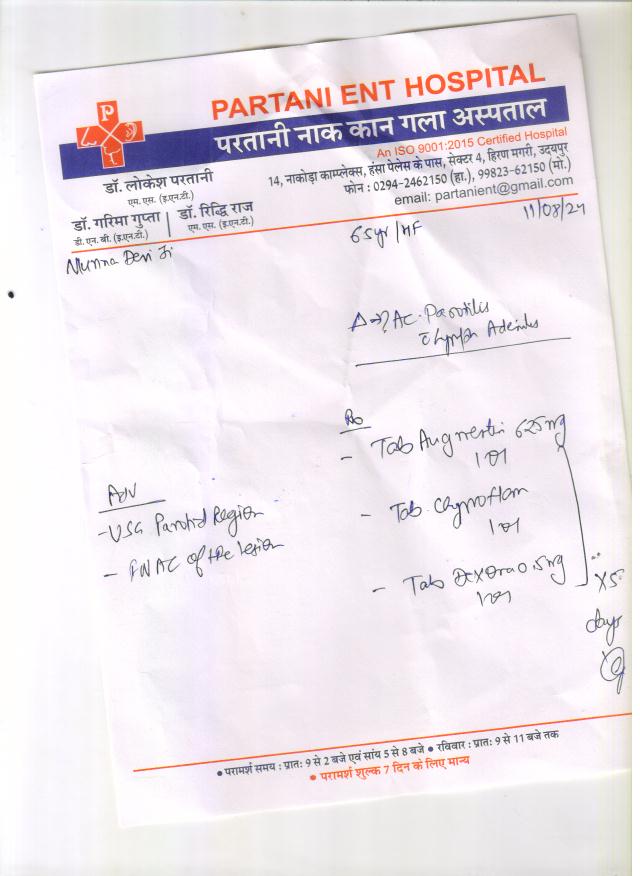 PARTANI ENT HOSPITAL
परतानी नाक कान गला अस्पताल
An ISO 9001:2015 Certified Hospital
14, नाकोड़ा काम्प्लेक्स, हंसा पेलेस के पास, सेक्टर 4, हिरण मगरी, उदयपुर
फोन : 0294-2462150 (हा.), 99823-62150 (मो.)
email: partanient@gmail.com
डॉ. लोकेश परतानी
एम. एस. (इ.एन.टी.)
डॉ. गरिमा गुप्ता
डी. एन. बी. (इ.एन.टी.)
डॉ. रिद्धि राज
एम. एस. (इ.एन.टी.)
11/08/24
Munna Devi Ji
65yr
Δ→? AC. Parotitis
c Lymph Adenitis
Rx
- Tab Augmentin 625mg
- Tab. Chymoflam
- Tab Dexona 0.5mg
x5
days
Adv
- USG Parotid Region
- FNAC of the lesion
• परामर्श समय : प्रातः 9 से 2 बजे एवं सांय 5 से 8 बजे • रविवार : प्रातः 9 से 11 बजे तक
• परामर्श शुल्क 7 दिन के लिए मान्य